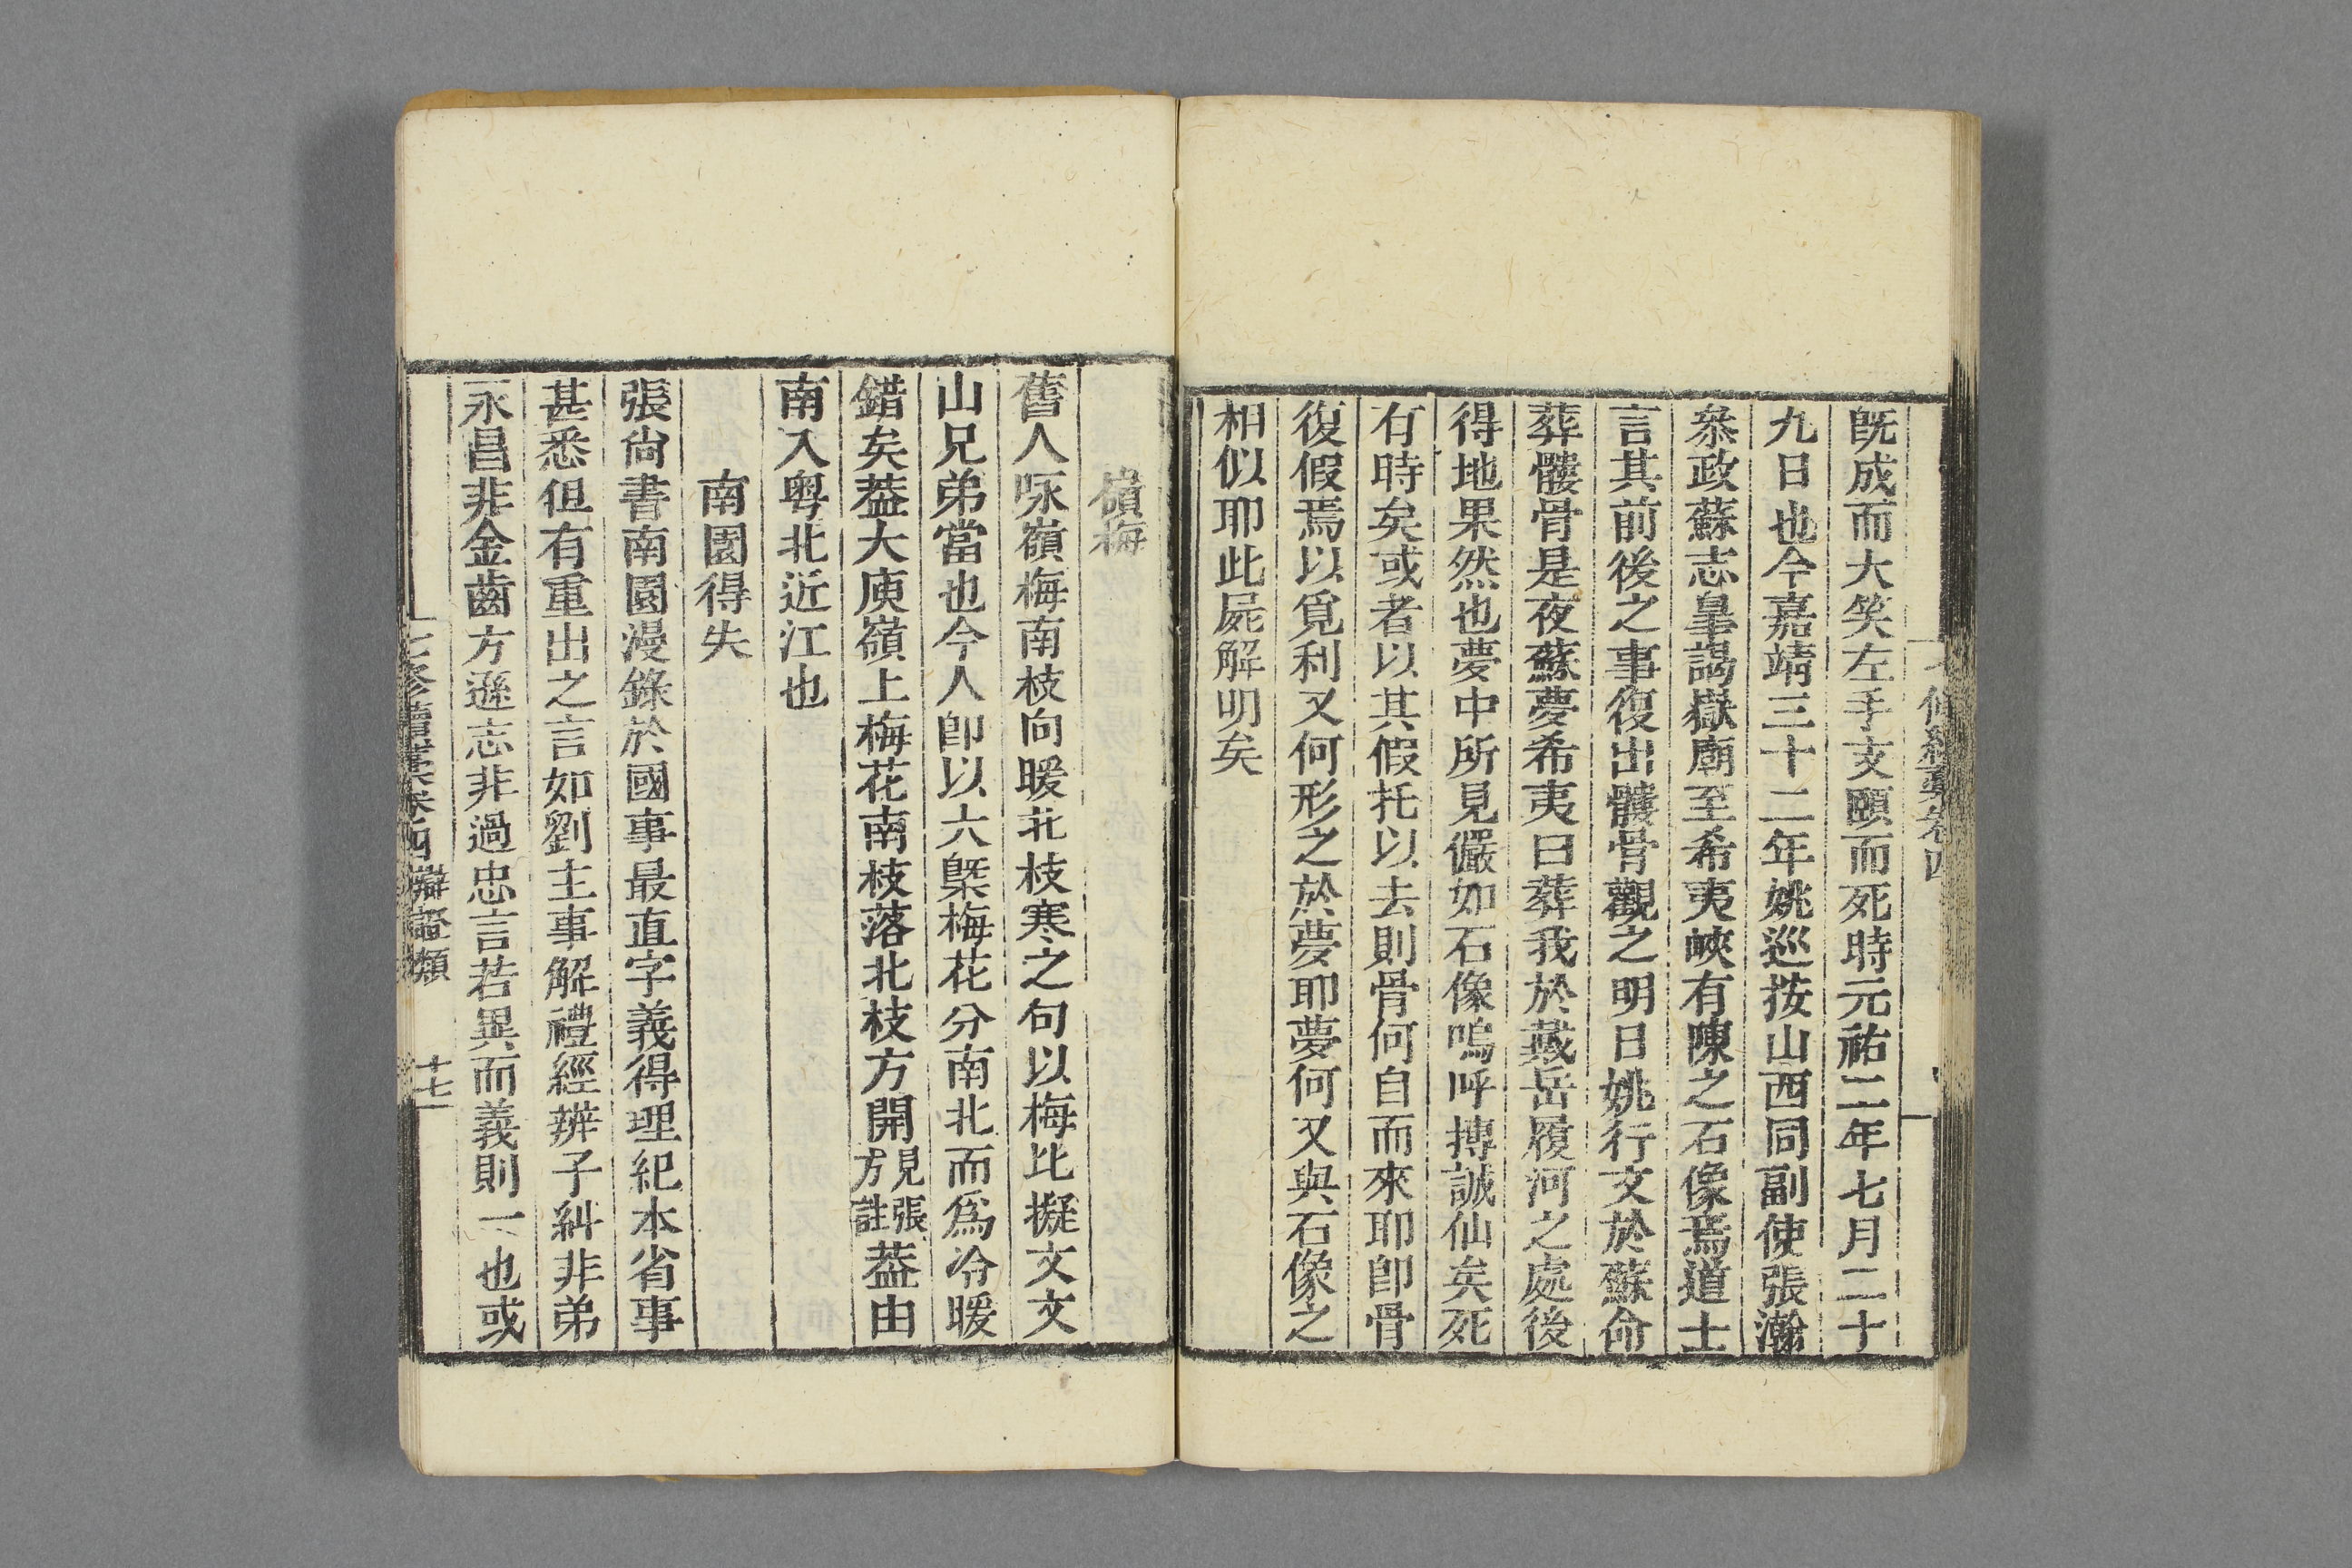 既成而大笑左手支頤而死時元祐二年七月二十
九日也今嘉靖三十二年姚巡按山西同副使張瀚
叅政蘇志皐謁嶽廟至希夷峽有陳之石像焉道士
言其前後之事復出髏骨觀之明日姚行文於蘇命
葬髏骨是夜蘇夢希夷曰葬我於戴岳履河之處後
得地果然也夢中所見儼如石像嗚呼摶誠仙矣死
有時矣或者以其假托以去則骨何自而來耶卽骨
復假焉以覓利又何形之於夢耶夢何又與石像之
相似耶此屍解明矣
嶺梅
舊人咏嶺梅南枝向暖北枝寒之句以梅比擬文文
山兄弟當也今人卽以六槩梅花分南北而爲冷暖
錯矣葢大庾嶺上梅花南枝落北枝方開見張方註葢由
南入粤北近江也
南園得失
張尚書南園漫錄於國事最直字義得理紀本省事
甚悉但有重出之言如劉主事解禮經辨子糾非弟
永昌非金齒方遜志非過忠言若異而義則一也或
七修續藁卷四 辯證類 十七